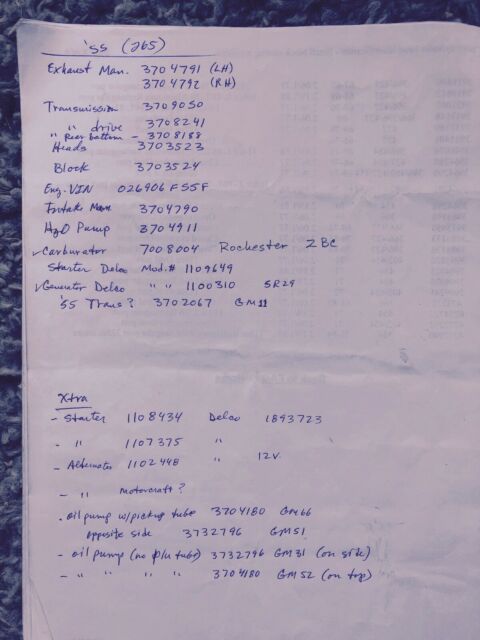 '55 (265)
Exhaust Man. 3704791 (LH)
3704792 (RH)
Transmission 3709050
" drive 3708241
" Rear bottom - 3708188
Heads 3703523
Block 3703524
Eng. VIN 026906 F55F
Intake Man 3704790
H2O Pump 3704911
✓Carburator 7008004 Rochester 2BC
Starter Delco Mod.# 1109649
✓Generator Delco " " 1100310 5R29
'55 Trans? 3702067 GM11
Xtra
- Starter 1108434 Delco 1893723
- " 1107375 "
- Alternator 1102448 " 12V.
- " Motorcraft?
- oil pump w/pickup tube 3704180 GM66
opposite side 3732796 GM51
- oil pump (no p/u tube) 3732796 GM31 (on side)
- " " " " 3704180 GM52 (on top)